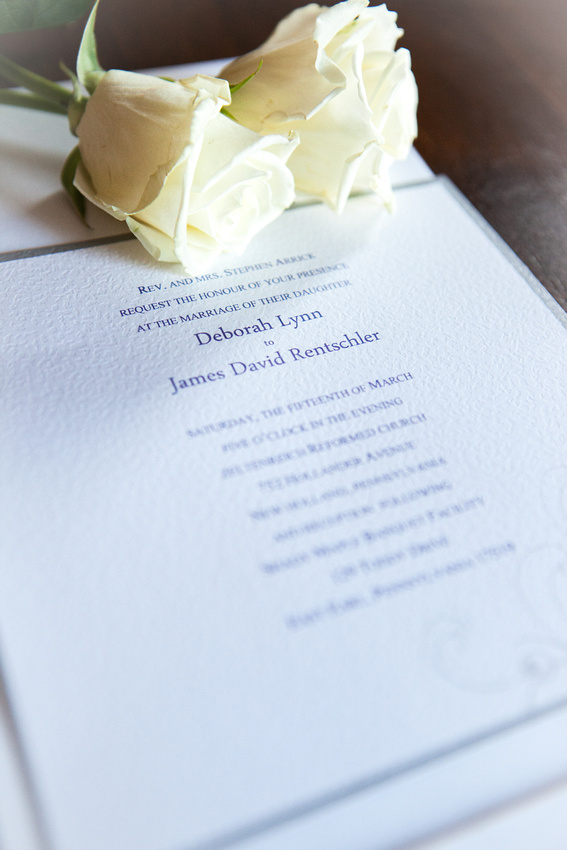 Rev. and Mrs. Stephen Arrick
request the honour of your presence
at the marriage of their daughter
Deborah Lynn
to
James David Rentschler
Saturday, the fifteenth of March
five o'clock in the evening
Reformed church
752 Hollander Avenue
New Holland, Pennsylvania
and reception following
Banquet Facility
Pennsylvania